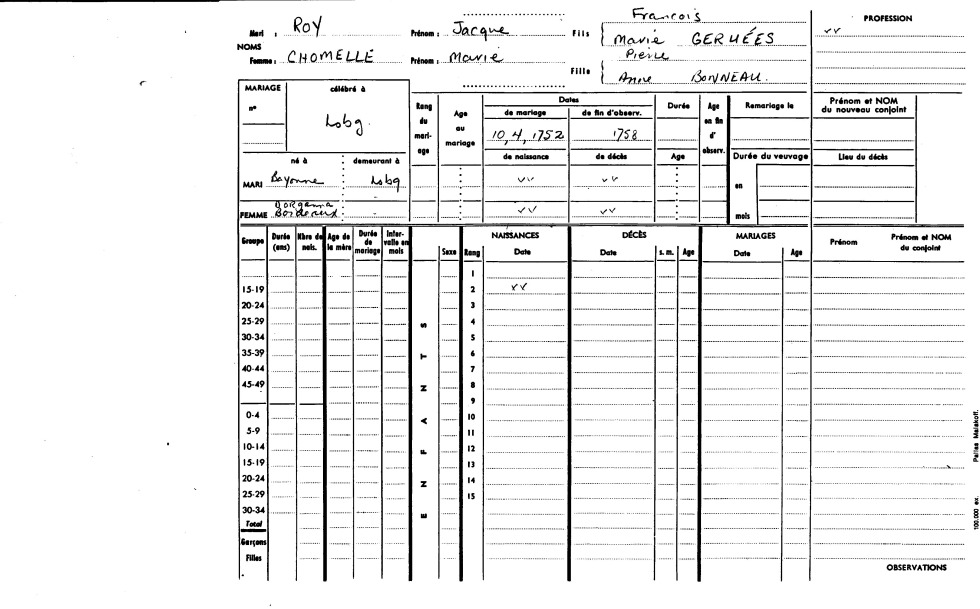 François
Mari : ROY Prénom : Jacque Fils { Marie GERHÉES PROFESSION
NOMS
Femme : CHOMELLE Prénom : Marie Pierre
Fille { Anne BONNEAU.
MARIAGE célébré à
n° Lsbg.
Rang du mariage Age au mariage Dates Durée Age en fin d'observ. Remariage le Prénom et NOM du nouveau conjoint
de mariage de fin d'observ.
10, 4, 1752 1758
né à demeurant à de naissance de décès Age Durée du veuvage Lieu du décès
MARI Bayonne Lsbg vv vv en
FEMME Bordeaux - vv vv mois
Groupe Durée (ans) Nbre de nais. Age de la mère Durée de mariage Intervalle en mois ENFANTS Sexe Rang NAISSANCES Date DÉCÈS Date s. m. Age MARIAGES Date Age Prénom Prénom et NOM du conjoint
1
15-19 2 vv
20-24 3
25-29 4
30-34 5
35-39 6
40-44 7
45-49 8
9
0-4 10
5-9 11
10-14 12
15-19 13
20-24 14
25-29 15
30-34
Total
Garçons
Filles
OBSERVATIONS
100.000 ex. Pallas Malakoff.